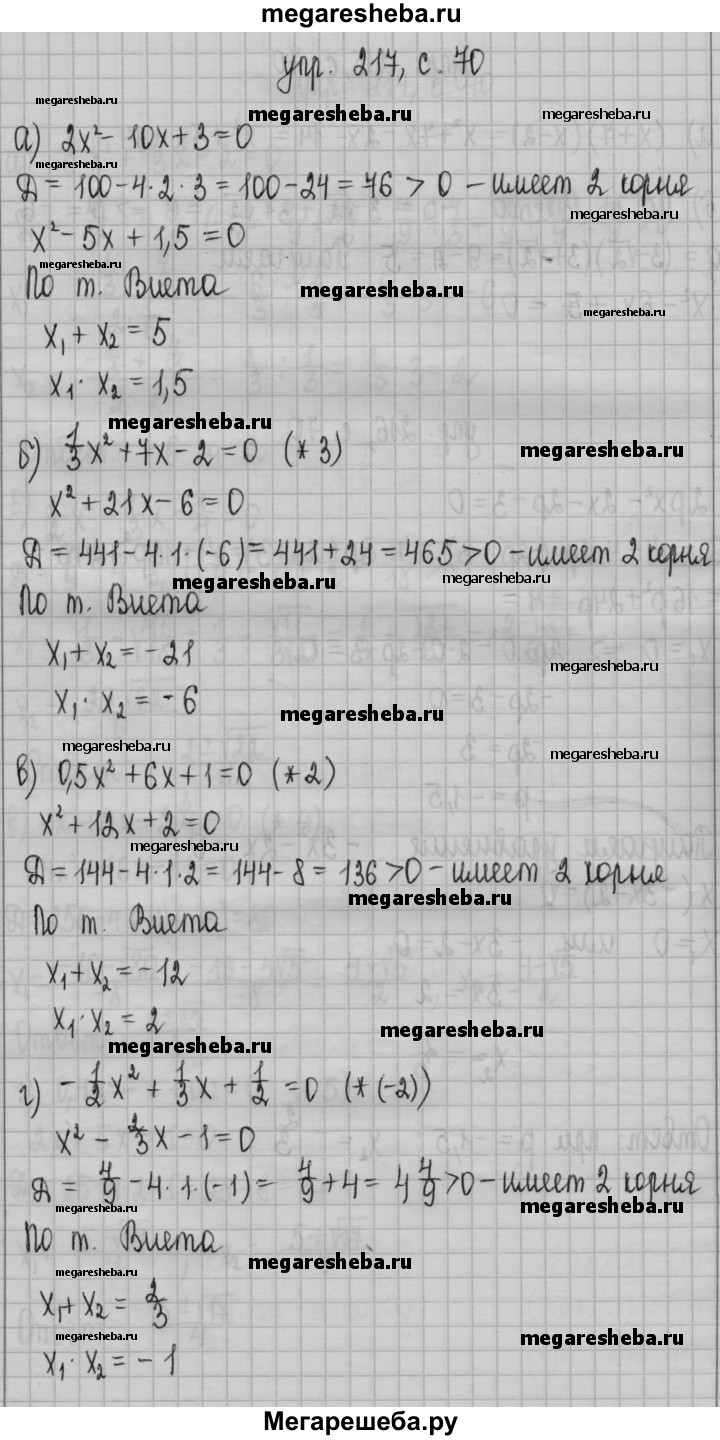 megaresheba.ru
упр. 217, с. 70
megaresheba.ru
megaresheba.ru
megaresheba.ru
а) 2x² - 10x + 3 = 0
megaresheba.ru
Д = 100 - 4 · 2 · 3 = 100 - 24 = 76 > 0 - имеет 2 корня
megaresheba.ru
x² - 5x + 1,5 = 0
megaresheba.ru
По т. Виета
megaresheba.ru
megaresheba.ru
x₁ + x₂ = 5
x₁ · x₂ = 1,5
megaresheba.ru
б) 1/3 x² + 7x - 2 = 0 (* 3)
megaresheba.ru
x² + 21x - 6 = 0
Д = 441 - 4 · 1 · (-6) = 441 + 24 = 465 > 0 - имеет 2 корня
megaresheba.ru
megaresheba.ru
По т. Виета
x₁ + x₂ = - 21
megaresheba.ru
x₁ · x₂ = - 6
megaresheba.ru
megaresheba.ru
megaresheba.ru
в) 0,5x² + 6x + 1 = 0 (* 2)
x² + 12x + 2 = 0
megaresheba.ru
Д = 144 - 4 · 1 · 2 = 144 - 8 = 136 > 0 - имеет 2 корня
megaresheba.ru
По т. Виета
x₁ + x₂ = - 12
x₁ · x₂ = 2
megaresheba.ru
megaresheba.ru
г) - 1/2 x² + 1/3 x + 1/2 = 0 (* (-2))
x² - 2/3 x - 1 = 0
Д = 4/9 - 4 · 1 · (-1) = 4/9 + 4 = 4 4/9 > 0 - имеет 2 корня
megaresheba.ru
megaresheba.ru
По т. Виета
megaresheba.ru
megaresheba.ru
x₁ + x₂ = 2/3
megaresheba.ru
megaresheba.ru
x₁ · x₂ = - 1
Мегарешеба.ру